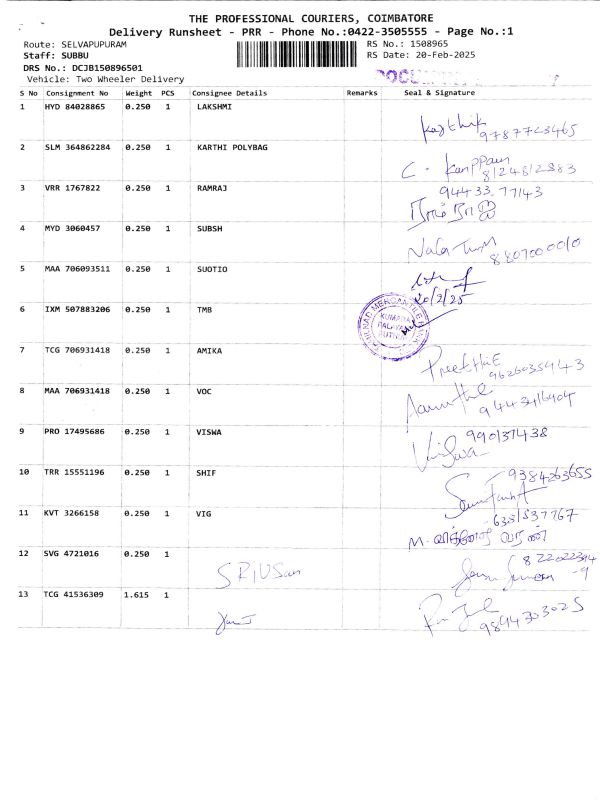 THE PROFESSIONAL COURIERS, COIMBATORE
Delivery Runsheet - PRR - Phone No.:0422-3505555 - Page No.:1
Route: SELVAPUPURAM
RS No.: 1508965
Staff: SUBBU
RS Date: 20-Feb-2025
DRS No.: DCJB150896501
Vehicle: Two Wheeler Delivery
S No Consignment No Weight PCS Consignee Details Remarks Seal & Signature
1 HYD 84028865 0.250 1 LAKSHMI
Karthik
9787723465
2 SLM 364862284 0.250 1 KARTHI POLYBAG
C.
8124812883
3 VRR 1767822 0.250 1 RAMRAJ
94433 77143
4 MYD 3060457 0.250 1 SUBSH
5 MAA 706093511 0.250 1 SUOTIO
20/2/25
6 IXM 507883206 0.250 1 TMB
MERCANTILE
7 TCG 706931418 0.250 1 AMIKA
9626035443
8 MAA 706931418 0.250 1 VOC
9 PRO 17495686 0.250 1 VISWA
990137438
10 TRR 15551196 0.250 1 SHIF
9384263655
11 KVT 3266158 0.250 1 VIG
M.
12 SVG 4721016 0.250 1
13 TCG 41536309 1.615 1
98944303025